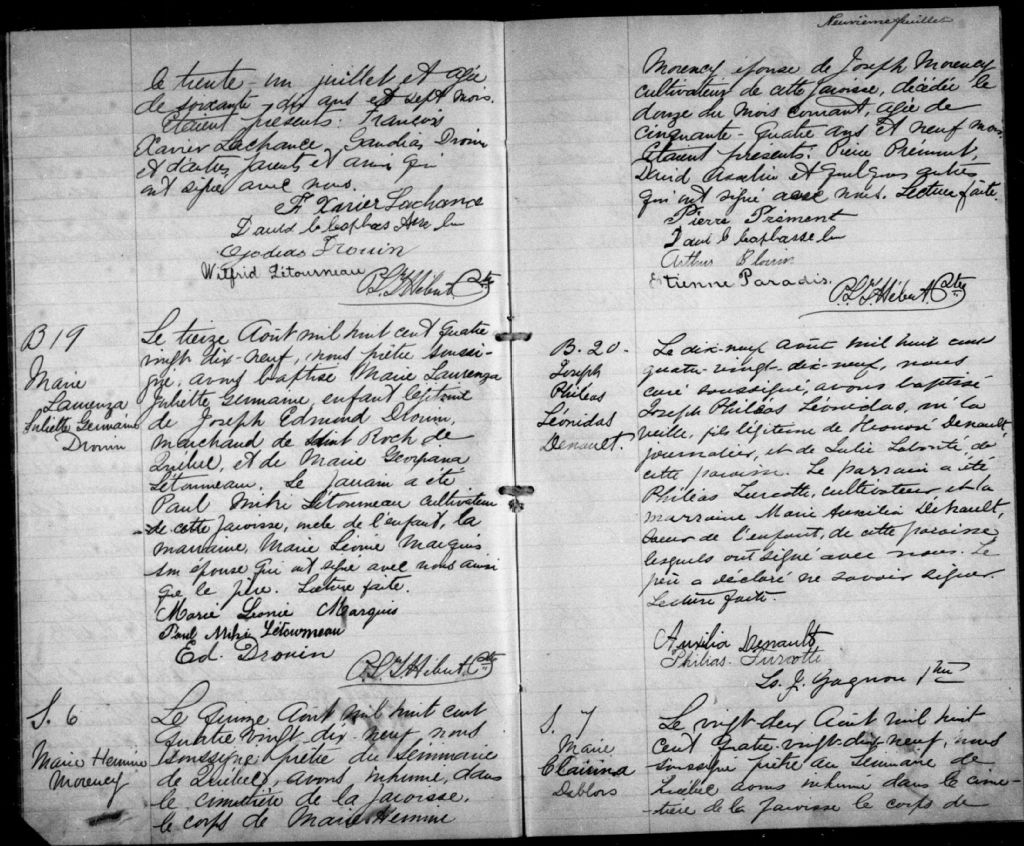 le trente un juillet et agée
de soixante dix ans et sept mois.
Etaient présents: François
Xavier Lachance, Gaudias Drouin
et d'autres parents et amis qui
ont signé avec nous.
F. Xavier Lachance
David
Drouin
Wilfrid Létourneau
Hébert Ptre
B 19
Marie
Laurenza
Juliette Germaine
Drouin
Le treize Août mil huit cent quatre
vingt dix-neuf, nous prêtre soussi-
gné, avons baptisé Marie Laurenza
Juliette Germaine, enfant légitime
de Joseph Edmond Drouin,
marchand de Saint Roch de
Québec, et de Marie Georgiana
Létourneau. Le parrain a été
Paul Miki Létourneau cultivateur
de cette paroisse, oncle de l'enfant, la
marraine, Marie Léonie Marquis
son épouse qui ont signé avec nous ainsi
que le père. Lecture faite.
Marie Leonie Marquis
Paul Miki Létourneau
Ed. Drouin
Hébert Ptre
S. 6
Marie Hermine
Morency
Le quinze Août mil huit cent
quatre vingt dix-neuf, nous
soussigné prêtre du Séminaire
de Québec, avons inhumé, dans
le cimetière de la paroisse,
le corps de Marie Hermine
Neuvième feuillet
Morency épouse de Joseph Morency
cultivateur de cette paroisse, décédée le
douze du mois courant, agée de
cinquante-quatre ans et neuf mois
Etaient présents: Pierre Prémont,
David Asselin et quelques autres
qui ont signé avec nous. Lecture faite.
Pierre Prémont
David
Arthur Blouin
Etienne Paradis.
Hébert Ptre
B. 20.
Joseph
Philéas
Léonidas
Denault.
Le dix-neuf août mil huit cent
quatre-vingt-dix-neuf, nous
curé soussigné, avons baptisé
Joseph Philéas Léonidas, né la
veille, fils légitime de Honoré Denault
journalier, et de Julie Laberté, de
cette paroisse. Le parrain a été
Philéas Turcotte, cultivateur et la
marraine Marie Auxilia Denault,
soeur de l'enfant, de cette paroisse
lesquels ont signé avec nous. Le
père a déclaré ne savoir signer.
Lecture faite.
Auxilia Denault
Philias Turcotte
Ls. J. Gagnon Ptre
S. 7
Marie
Clairina
Deblois
Le vingt-deux Août mil huit
cent quatre-vingt-dix-neuf, nous
soussigné prêtre du Séminaire de
Québec avons inhumé dans le cime-
tière de la paroisse le corps de